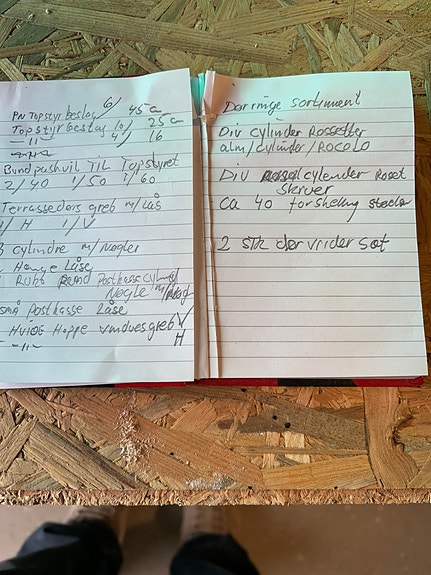 PN Topstyrbeslag 6/ 45 cm
Topstyrbeslag 10/ 25 cm
-11- 4/ 16
Bundpashvil TIL Topstyret
2/40 1/50 1/60
Terrassedørs greb m/Lås
H 1/V
3 cylindre m/Nøgler
Hænge Låse
Postkasse
Nøgle m/
små Postkasse Låse
HVIDE Hoppe vinduesgreb V
-11- H
Dørringe sortiment
Div cylinder Rossetter
alm/cylinder/ROCOLO
Div cylender Roset
skruer
Ca 40 forskellig steder
2 stk dørvrider sæt